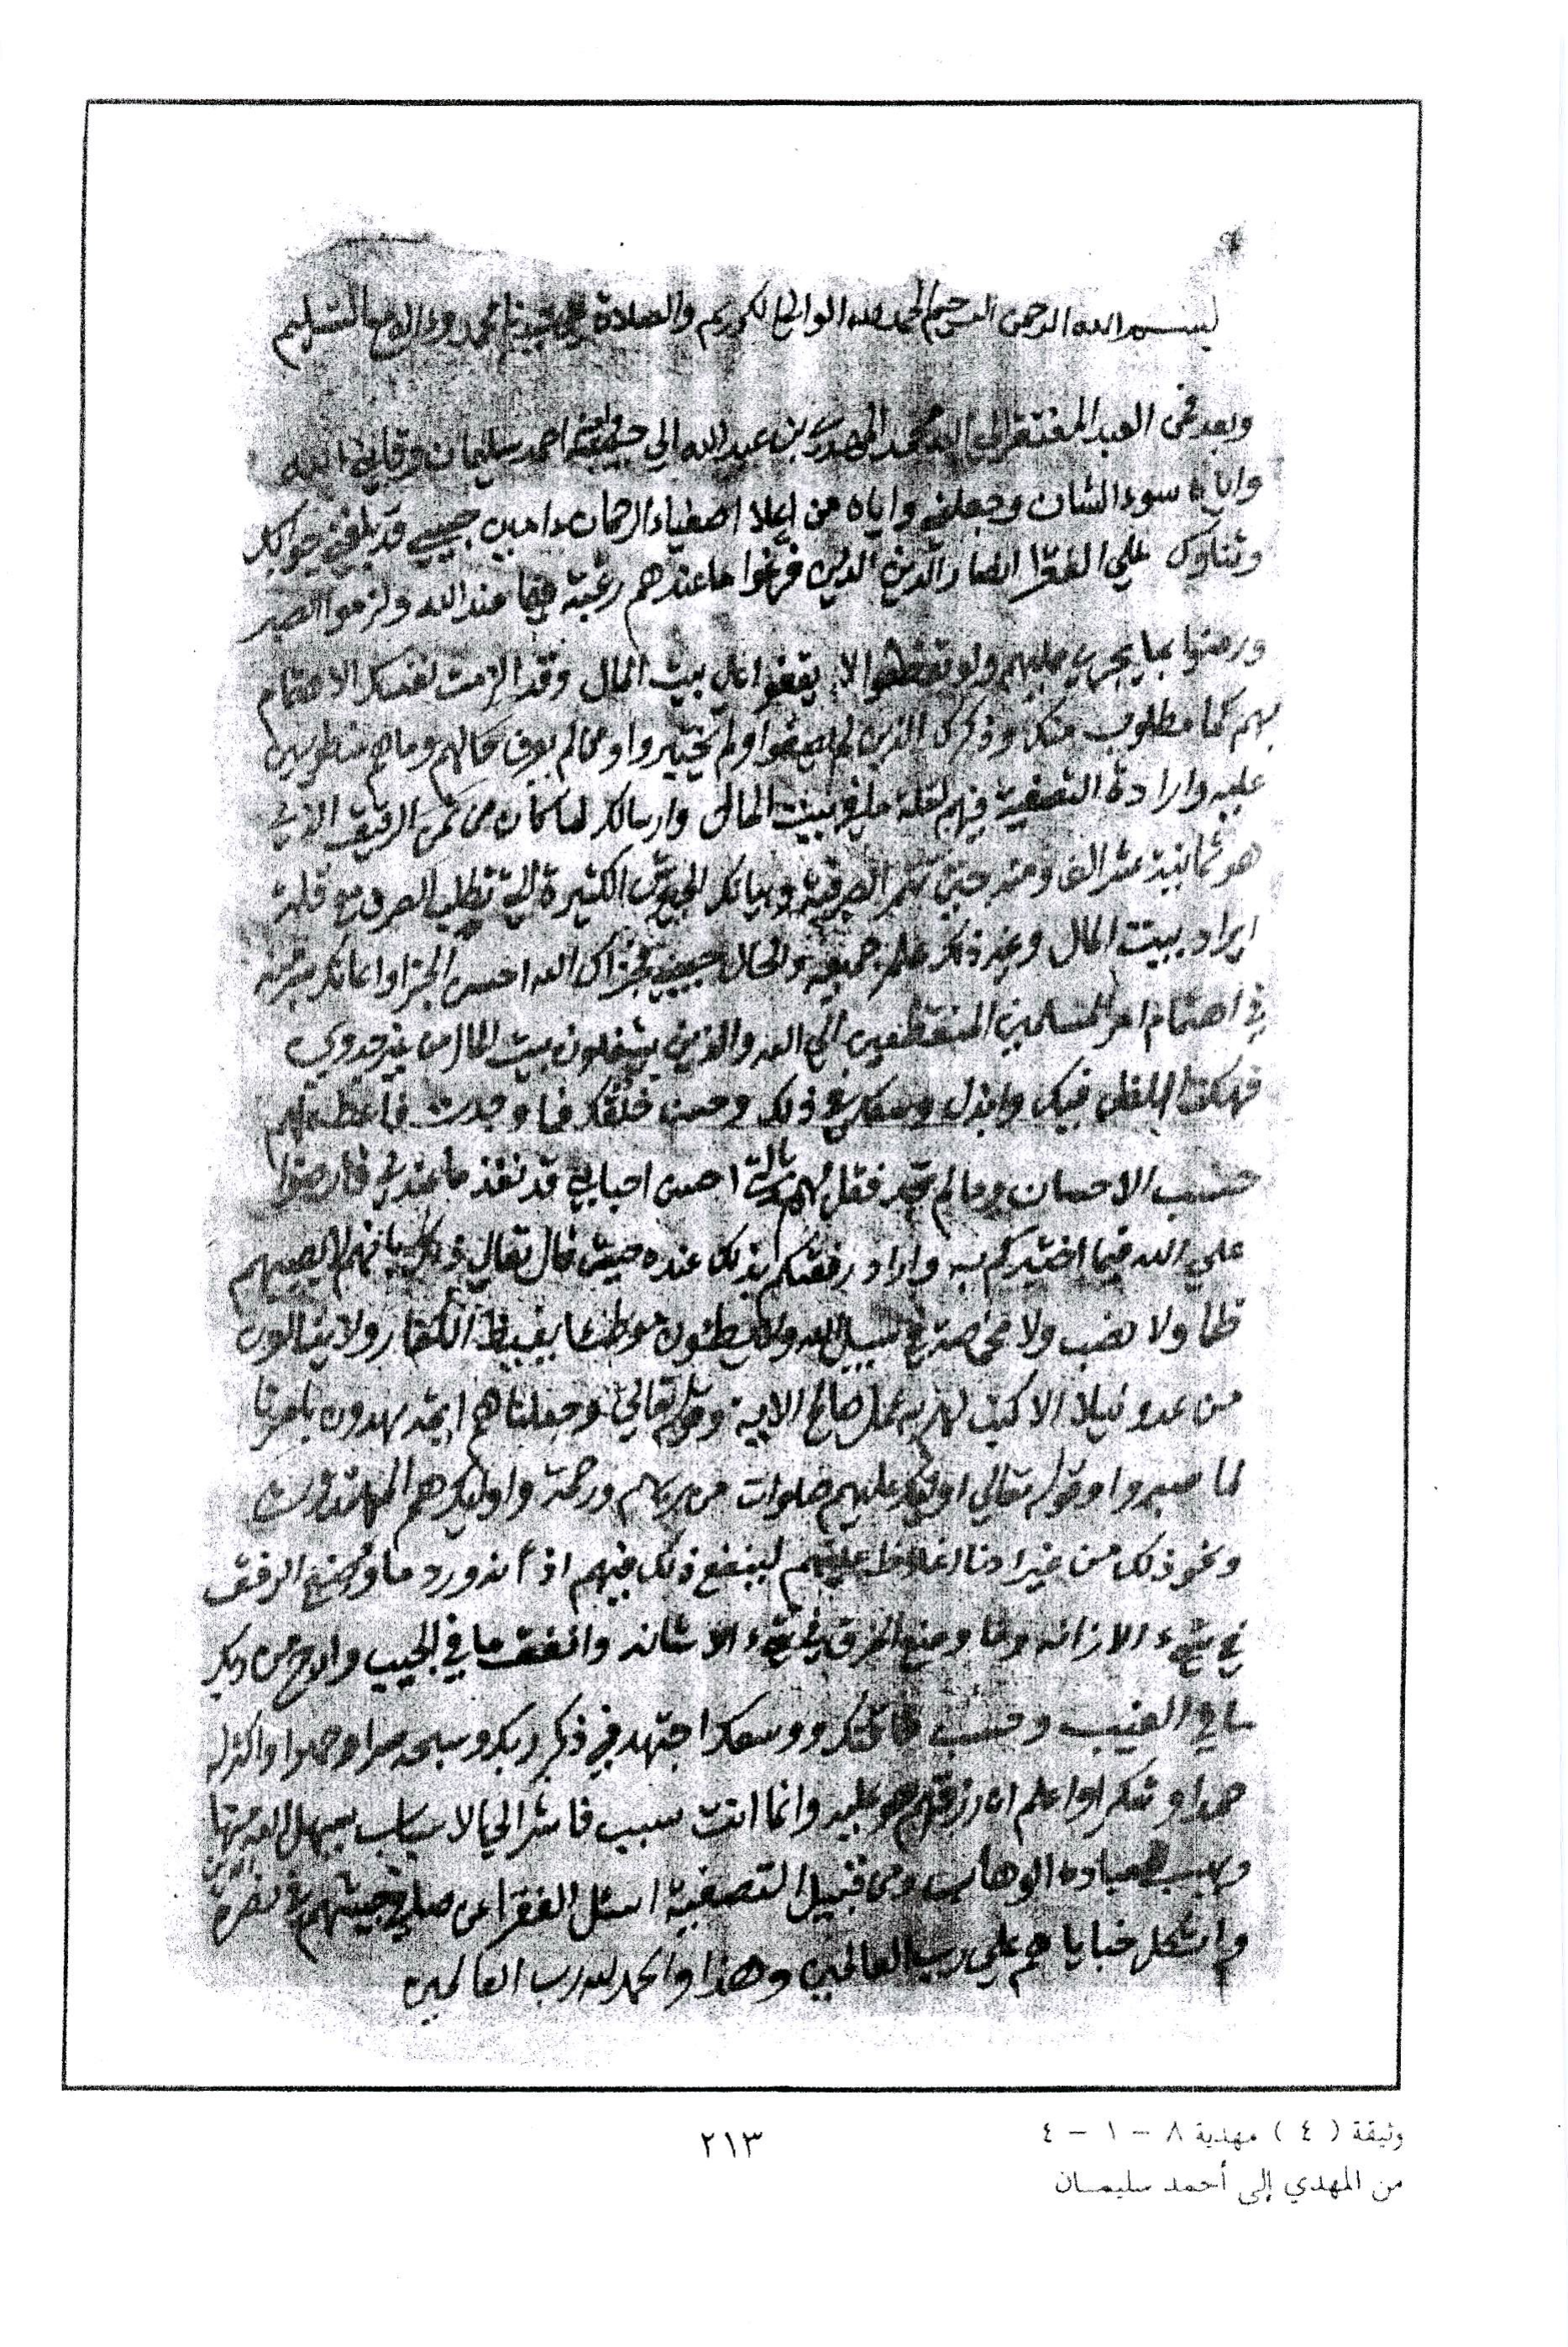 بسم الله الرحمن الرحيم الحمد لله الوالي الكريم والصلاة على سيدنا محمد وءاله مع التسليم
وبعد فمن العبد المفتقر الى الله محمد المهدي بن عبد الله الي احمد سليمان وقاني الله
واياه سوء الشان وجعلني واياه من اعلا اصفياء الرحمان ءامين حبيبي قد بلغني جوابكم
علي الفقرا الذين فرغوا ما عندهم رغبة فيما عند الله ولزموا الصبر
ورضوا بما يجري عليهم ولو الا بيت المال وقد الزمت نفسك الاهتمام
بهم كما مطلوب منك وذكرك الذين لم ولم يختبروا ومن لم يعرف حالهم وما هم منطويين
عليه وارادة التصفية فيهم لقلة ما في بيت المال وارسالك لما كان من ثمن الرقيق الذي
هو ثمانية عشر الفا وبيانك الجيوش الكثيرة التي تطلب الصرف مع قلة
ايراد بيت المال وغير ذلك علم جميعه والحال حبيبي فجزاك الله احسن الجزا واعانك
في اهتمام امر المسلمين المنقطعين الي الله والذين بيت المال من غير
فهكذا الظن فيك وابذل وسعك في ذلك وحسن خلقك فما وجدت فاعط لهم
حسب الاحسان وما لم تجد فقل لهم احبابي قد نفذ ما عندي فارضوا
علي الله فيما اختبركم به واراد رفعتكم بذلك عنده حيث قال تعالي ذلك بانهم لا يصيبهم
ظما ولا نصب ولا مخمصة في سبيل الله ولا يطئون موطئا يغيظ الكفار ولا ينالون
من عدو نيلا الا كتب لهم به عمل صالح الاية وقوله تعالي وجعلناهم ايمة يهدون بامرنا
لما صبروا وقوله تعالي اوليك عليهم صلوات من ربهم ورحمة واوليك هم المهتدون
ونحو ذلك من غير ادنا اغلاظ عليهم لينفع ذلك فيهم اذ انه ورد ما وضع الرفق
في شيء الا زانه وما وضع الخرق في شيء الا شانه وانفق ما في الجيب من ربك
ما في الغيب وحسب ووسعك اجتهد في ذكر ربك وسبحه سرا وجهرا واكثر له
حمدا وشكرا واعلم ان رزقهم هو عليه وانما انت سبب فاشر الي الاسباب يسهل الله منها
ويهب لعباده الوهاب ومن قبيل التصفية اسئل الفقرا عن صدق جيتهم في نصرة الدين
خباياهم علي رب العالمين وهذا والحمد لله رب العالمين
وثيقة ( ٤ ) مهدية ٨ - ١ - ٤
من المهدي إلى أحمد سليمان
٢١٣